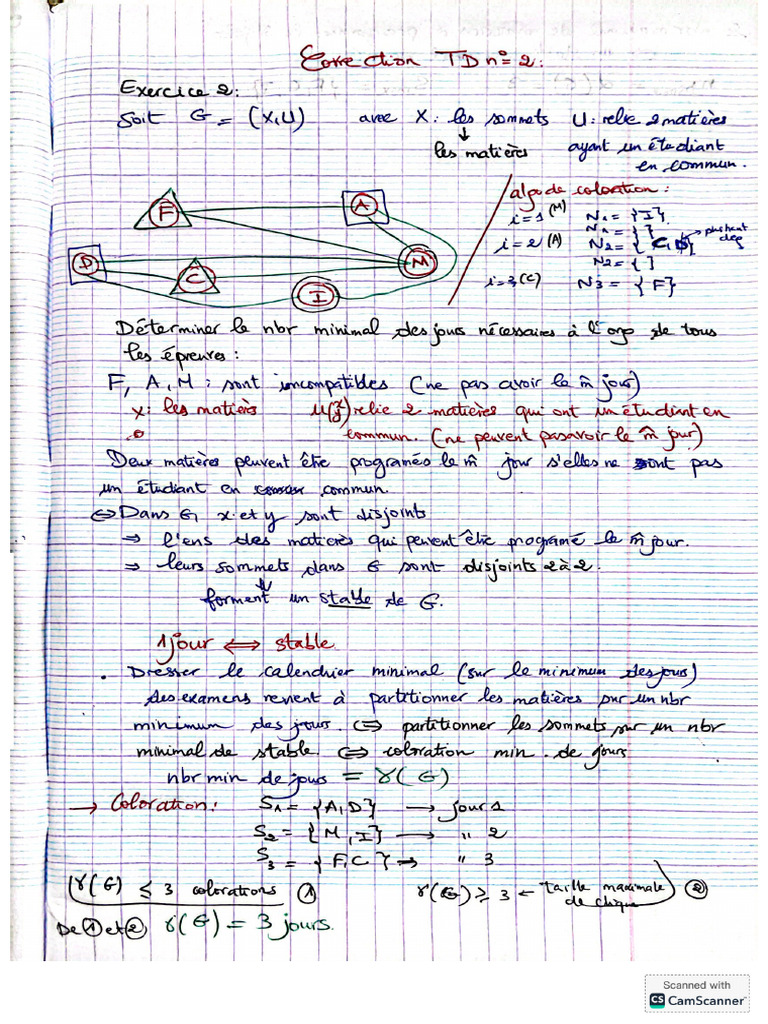 Correction TD n°= 2:
Exercice 2:
Soit G = (X,U) avec X: les sommets U: relie 2 matières
↓
les matières ayant un étudiant
en commun.
algo de coloration:
i=1 (M) N1 = {I}
N1 = { }
i=2 (A) N2 = { C, D}
N2 = { }
i=3 (C) N3 = {F}
F
A
D
C
M
I
Déterminer le nbr minimal des jours nécessaires à l'org de tous
les épreuves:
F, A, M: sont incompatibles (ne pas avoir le m̂ jour)
X: les matièrs relie 2 matières qui ont un étudiant en
commun. (ne peuvent pas avoir le m̂ jour)
Deux matières peuvent être programés le m̂ jour s'elles ne sont pas
un étudiant en commun.
⇔ Dans G, x et y sont disjoints
⇒ l'ens des matières qui peuvent être programé le m̂ jour.
⇒ leurs sommets dans G sont disjoints 2 à 2.
⇓
forment un stable de G.
1 jour ⟺ stable.
. Dresser le calendrier minimal (sur le minimum des jours)
des examens revient à partitionner les matières sur un nbr
minimun des jours. ⇔ partitionner les sommets sur un nbr
minimal de stable. ⇔ coloration min. de jours
nbr min de jours = γ(G)
→ Coloration: S1 = {A,D} → jour 1
S2 = {M,I} → " 2
S3 = {F,C} → " 3
γ(G) ≤ 3 colorations ① γ(G) ≥ 3 ← taille maximale ②
de clique
De ① et ② γ(G) = 3 jours.
Scanned with
CS CamScanner